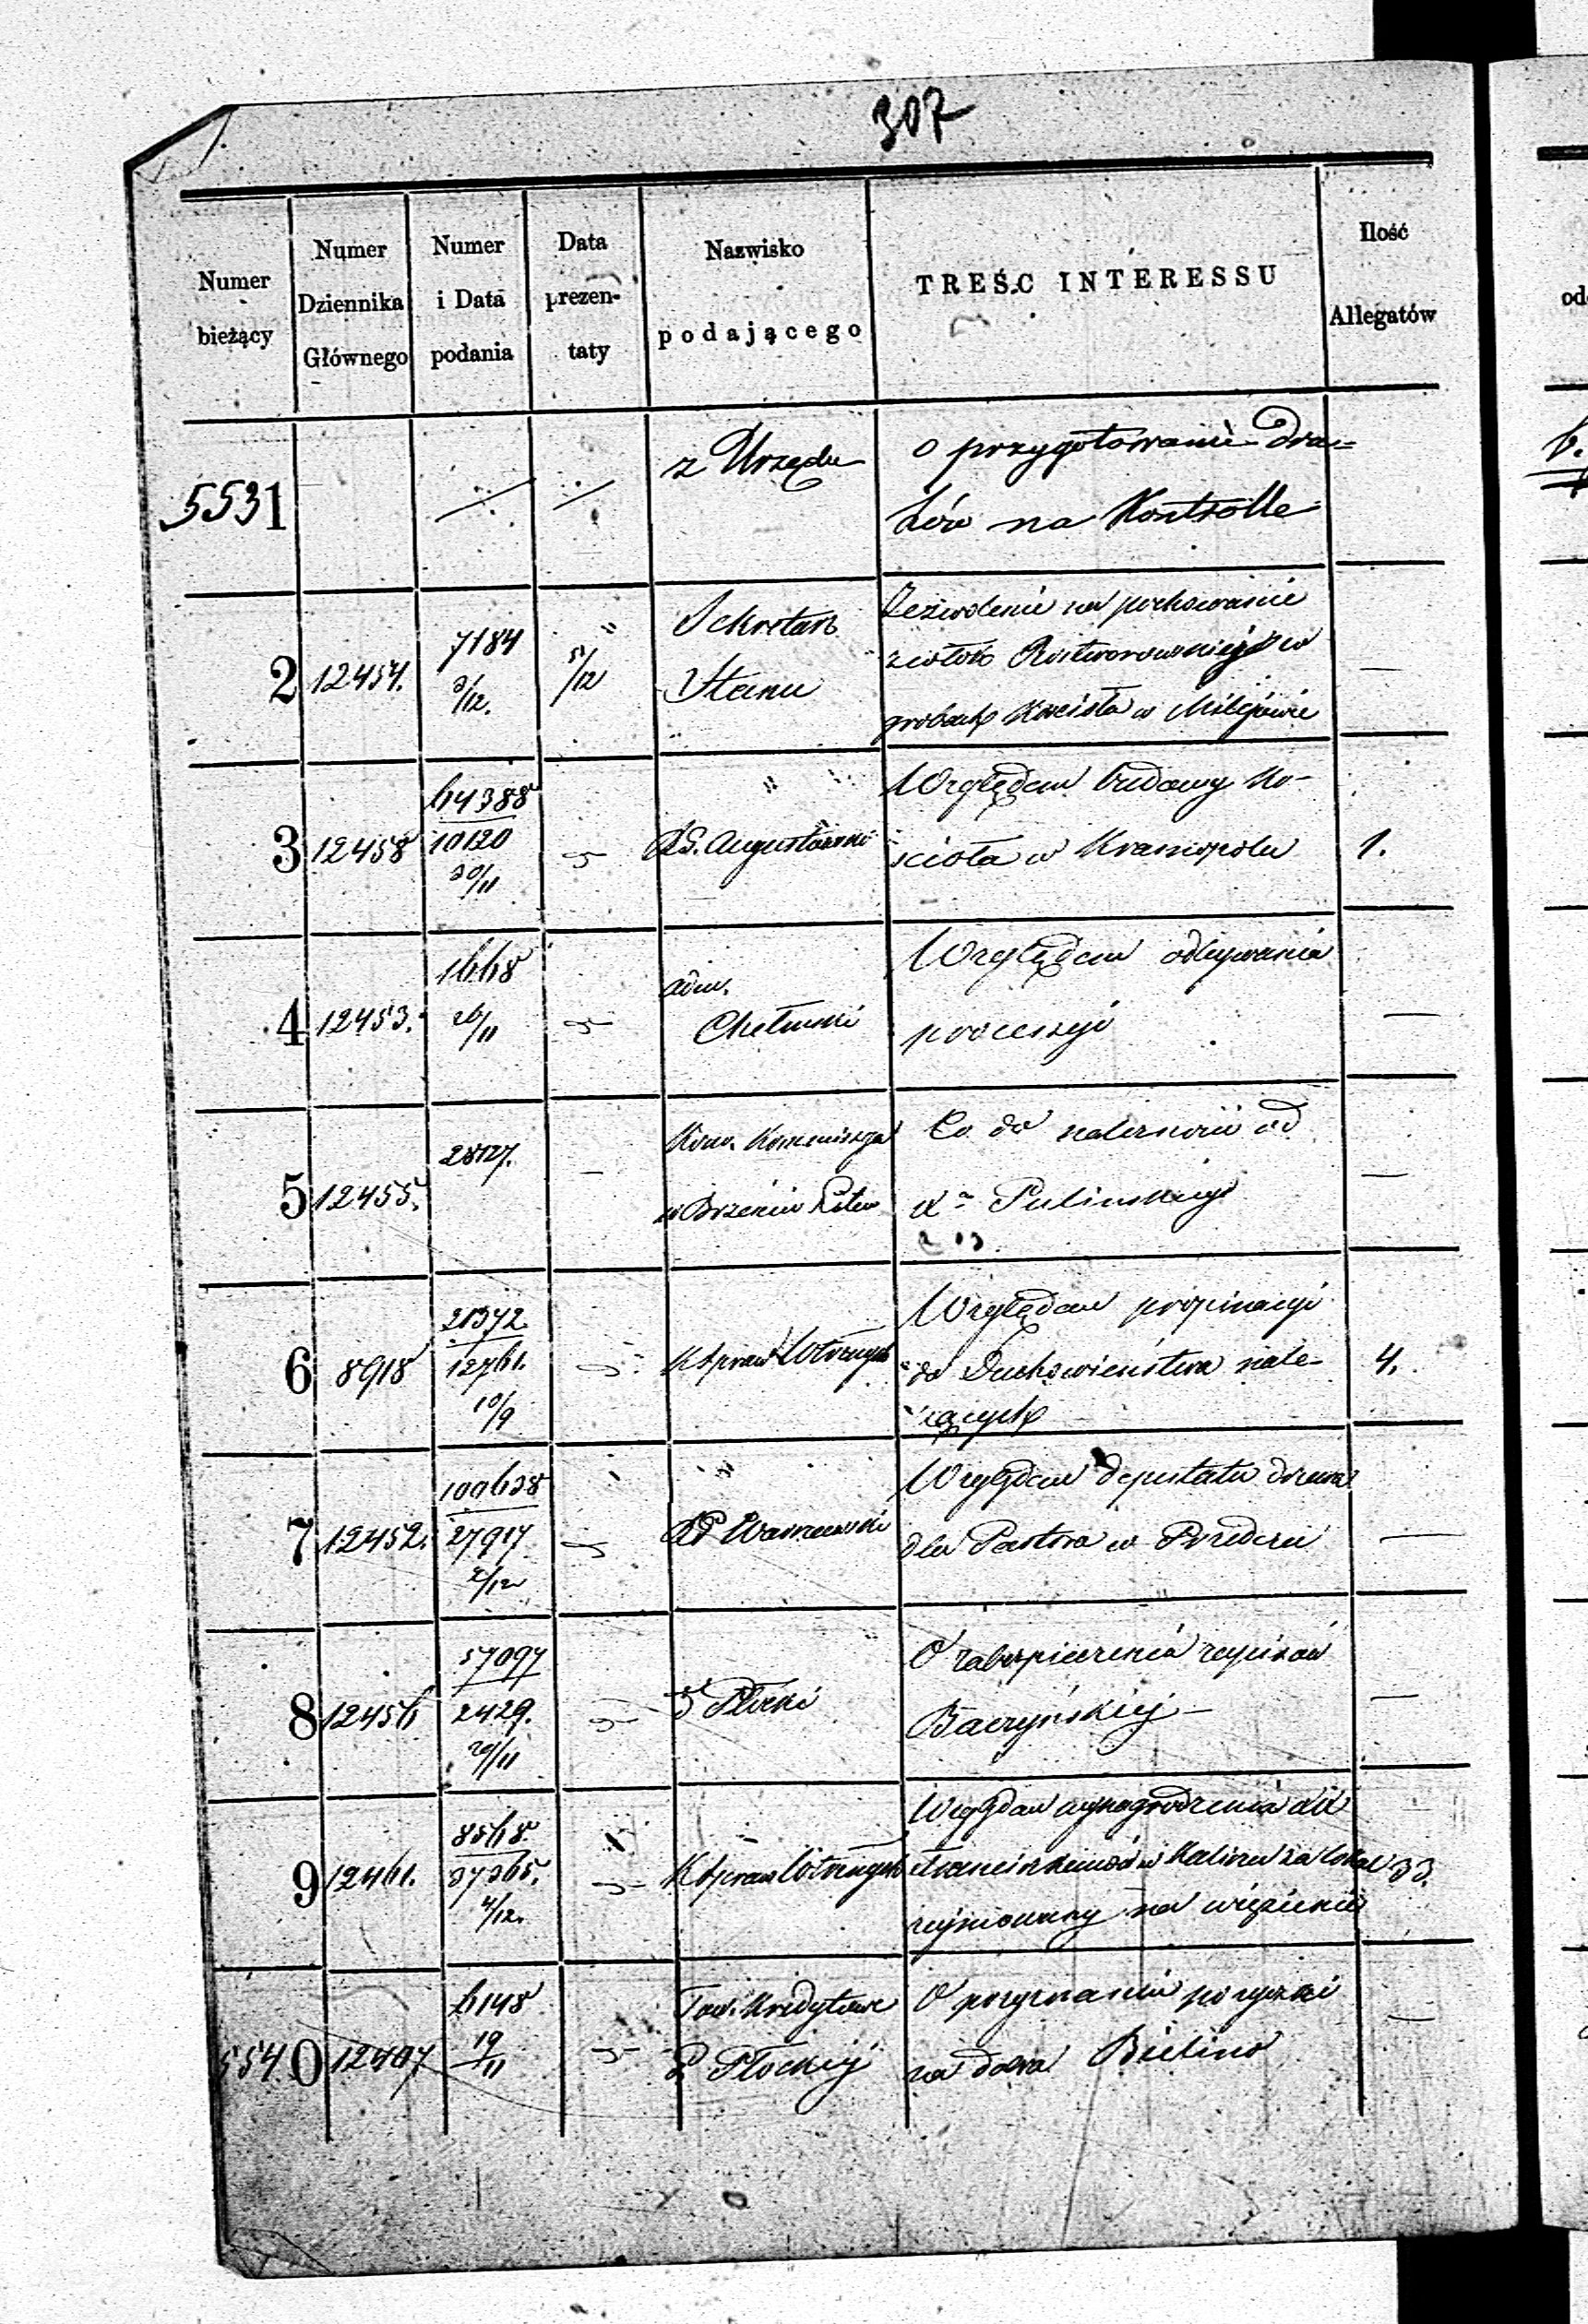 307
Numer bieżący
Numer Dziennika Głównego
Numer i Data podania
Data prezen-taty
Nazwisko podającego
TREŚC INTERESSU
Ilość Allegatów
5531 z Urzędu o przygotowanie dru=
ków na Kontrolle
2 12454. 7184 3/12. 5/12 Sekretarz Stanu Zezwolenie na pochowanie
zwłok Rostworowskiej w
grobach Kościoła w Milejowie —
3 12458 64388 10120 30/11 RG. Augustowski Względem budowy Ko-
ścioła w Krasnopolu 1.
4 12453. 1668 26/11 adm. Chełmski Względem odbywania
processyi —
5 12455. 28127. — Kom. Kommissya w Brześciu Litew Co do należności od
Xa Pulinskiego —
6 8918 21372 12761. 10/9 K Spraw Wewnętrznych Względem propinacyi
do Duchowieństwa nale-
żących 4.
7 12452. 100638 27917 2/12 RG Warszawski Względem deputatu drzewa
dla Pastora w —
8 12456 57097 2429. 29/11 Płocki O zabezpieczenia zapisów
Baczyńskiej —
9 12461. 8568. 37365. 4/12. K Spraw Wewnętrznych Względem wynagrodzenia XX
Franciszkanów w Kaliszu za lokal
zajmowany na więzienie 33.
5540 12407 6148 19/11 Tow. Kredytowe G Płockiej O przyznanie pożyczki
na dobra Bielino —